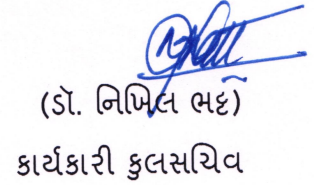 (ડૉ. નિખિલ ભટ્ટ)
કાર્યકારી કુલસચિવ